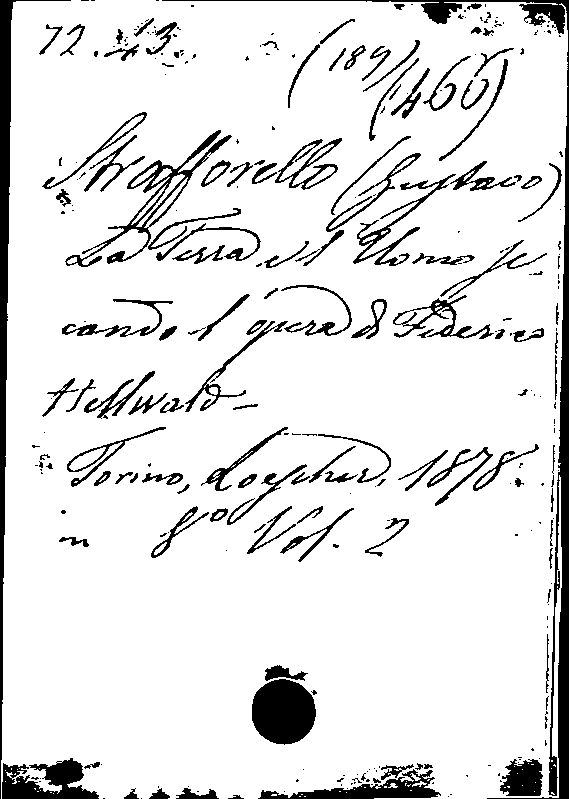 72.43.
(189)
(466)
Strafforello (Gustavo)
La Terra e l'Uomo se-
condo l'opera di Federico
Hellwald -
Torino, Loescher, 1878
in 8º Vol. 2